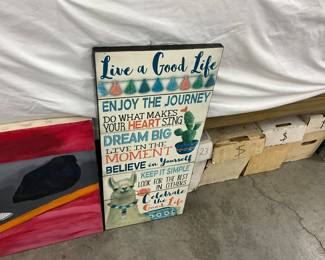 Live a Good Life
ENJOY THE JOURNEY
DO WHAT MAKES
YOUR HEART SING
DREAM BIG
LIVE IN THE
MOMENT
BELIEVE in Yourself
KEEP IT SIMPLE
LOOK FOR THE BEST
IN OTHERS
Celebrate
the Good Life
23
$
$
$